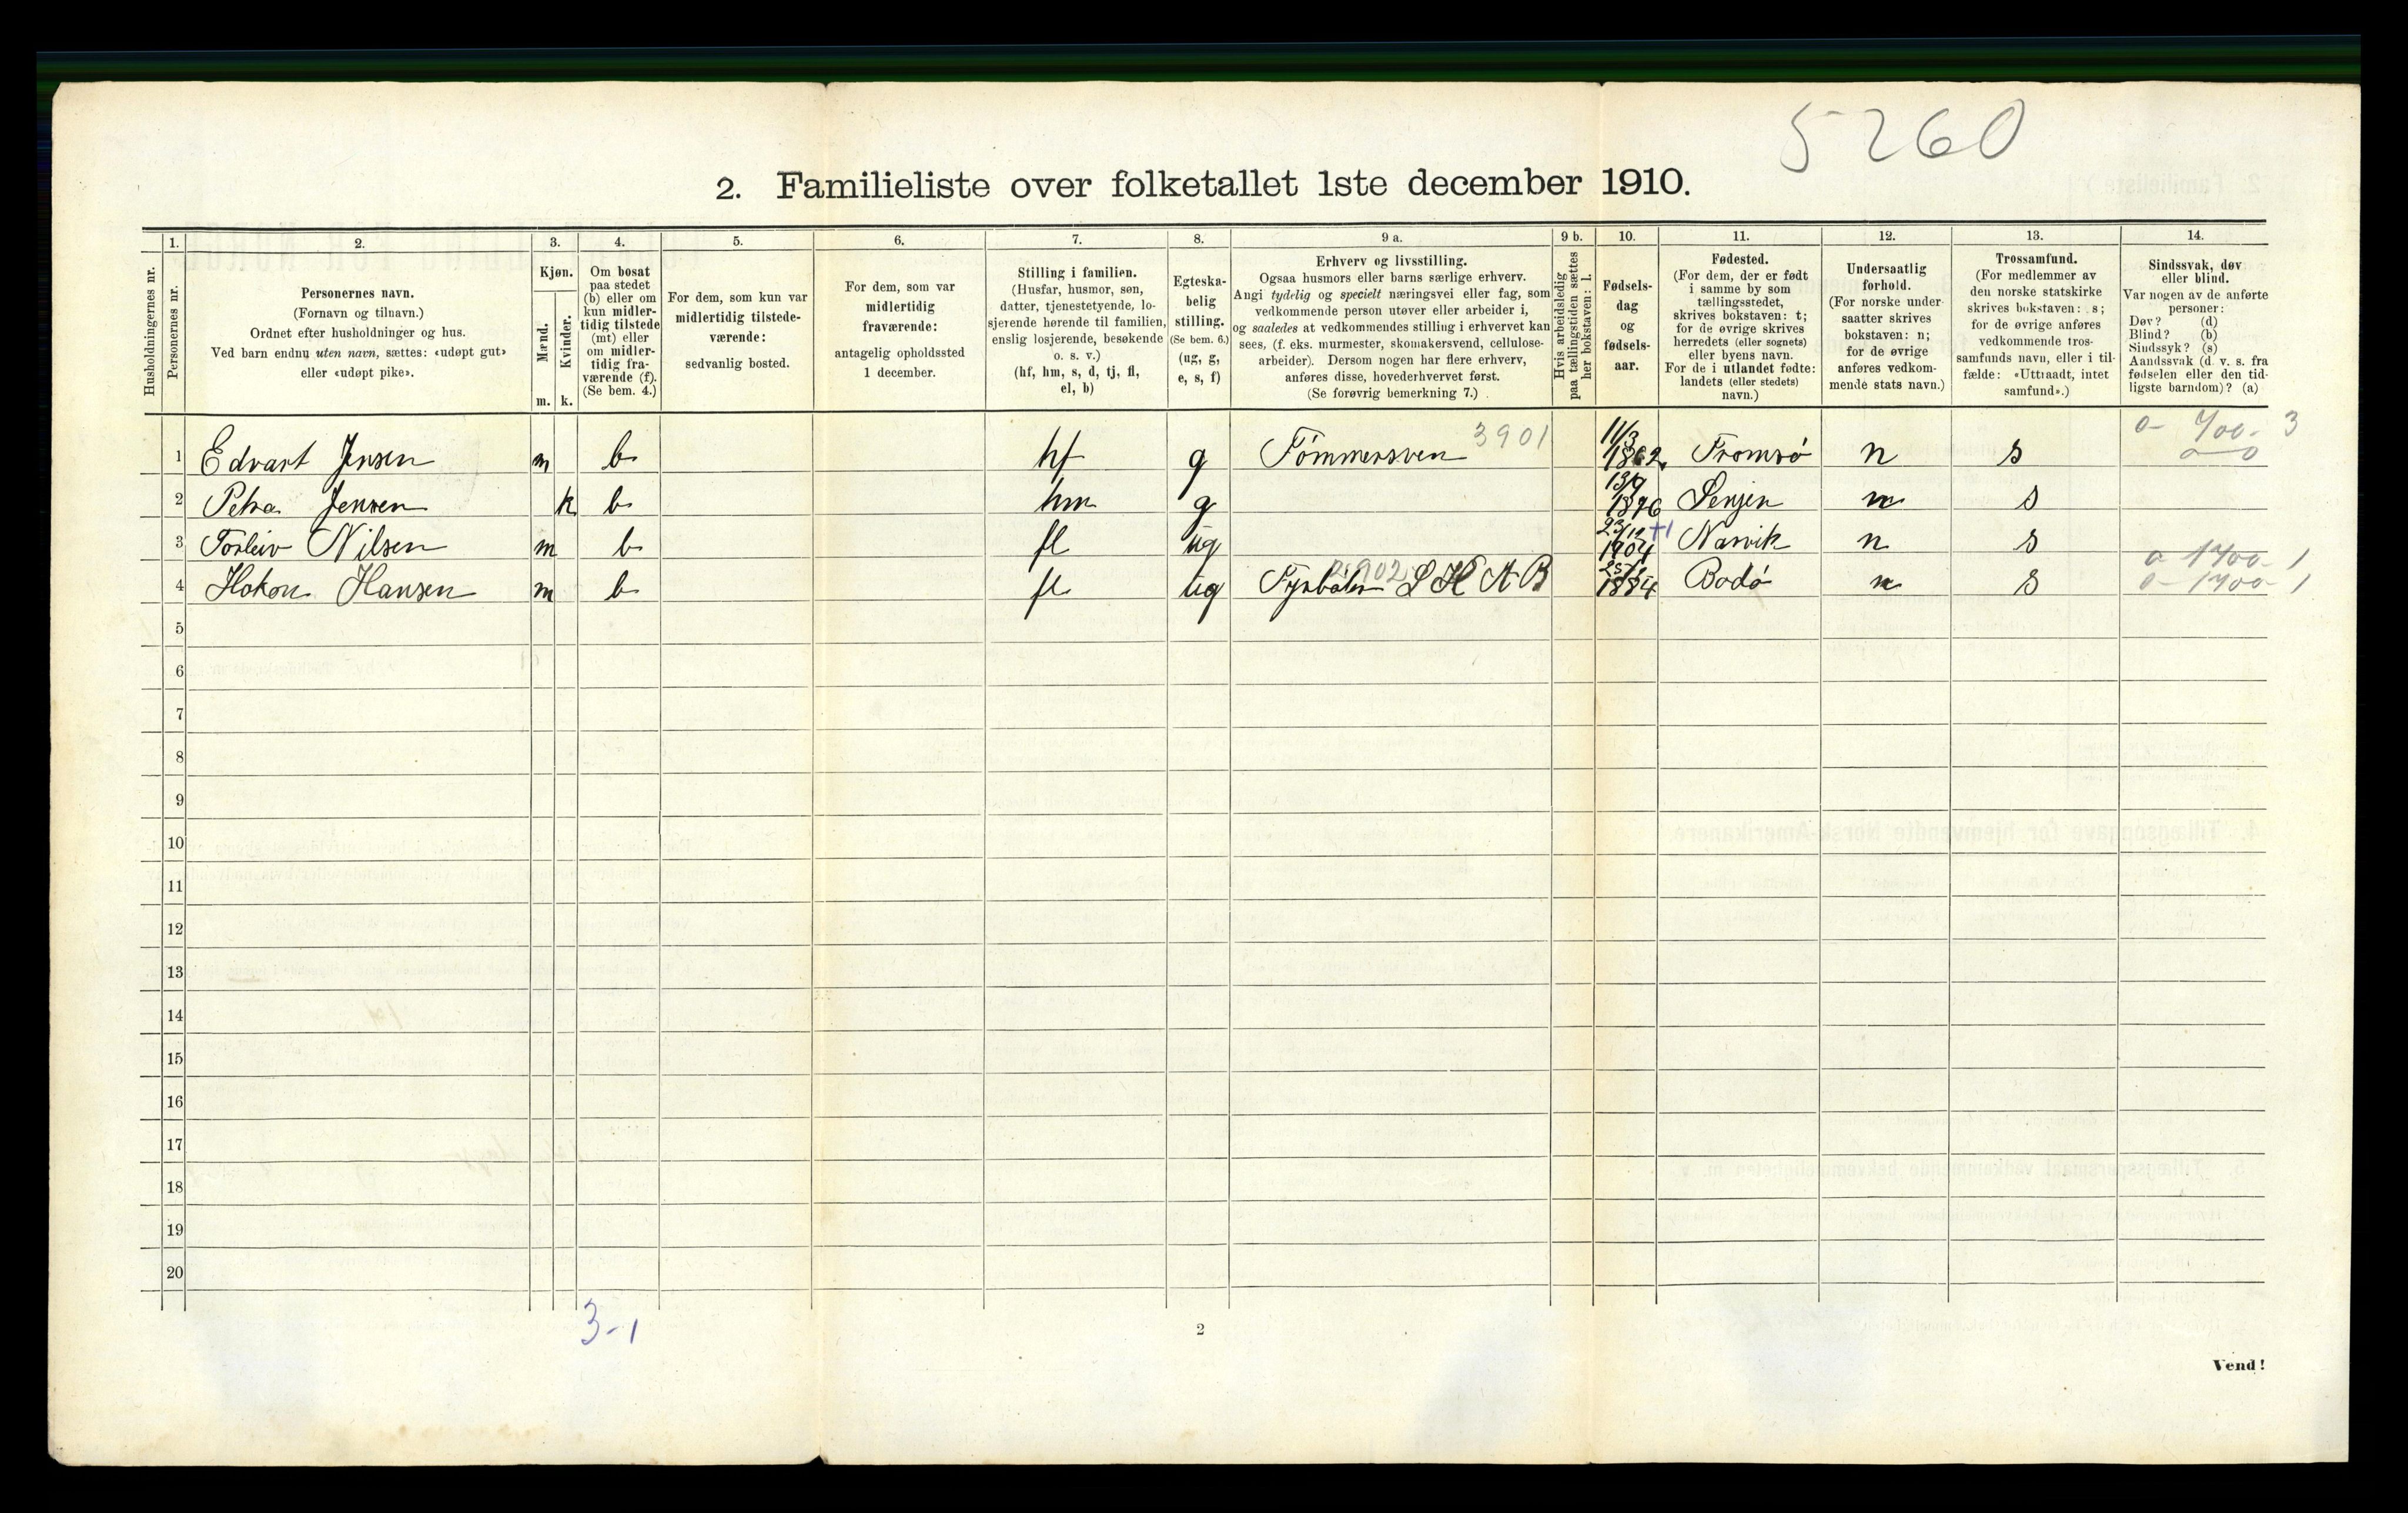 5260
2. Familieliste over folketallet 1ste december 1910.
Husholdningernes nr.
1.
Personernes nr.
2.
Personernes navn.
(Fornavn og tilnavn.)
Ordnet efter husholdninger og hus.
Ved barn endnu uten navn, sættes: «udøpt gut»
eller «udøpt pike».
3.
Kjøn.
Mænd.
Kvinder.
m. k.
4.
Om bosat
paa stedet
(b) eller om
kun midler-
tidig tilstede
(mt) eller
om midler-
tidig fra-
værende (f).
(Se bem. 4.)
5.
For dem, som kun var
midlertidig tilstede-
værende:
sedvanlig bosted.
6.
For dem, som var
midlertidig
fraværende:
antagelig opholdssted
1 december.
7.
Stilling i familien.
(Husfar, husmor, søn,
datter, tjenestetyende, lo-
sjerende hørende til familien,
enslig losjerende, besøkende
o. s. v.)
(hf, hm, s, d, tj, fl,
el, b)
8.
Egteska-
belig
stilling.
(Se bem. 6.)
(ug, g,
e, s, f)
9 a.
Erhverv og livsstilling.
Ogsaa husmors eller barns særlige erhverv.
Angi tydelig og specielt næringsvei eller fag, som
vedkommende person utøver eller arbeider i,
og saaledes at vedkommendes stilling i erhvervet kan
sees, (f. eks. murmester, skomakersvend, cellulose-
arbeider). Dersom nogen har flere erhverv,
anføres disse, hovederhvervet først.
(Se forøvrig bemerkning 7.)
9 b.
Hvis arbeidsledig
paa tællingstiden sættes
her bokstaven: l.
10.
Fødsels-
dag
og
fødsels-
aar.
11.
Fødested.
(For dem, der er født
i samme by som
tællingsstedet,
skrives bokstaven: t;
for de øvrige skrives
herredets (eller sognets)
eller byens navn.
For de i utlandet fødte:
landets (eller stedets)
navn.)
12.
Undersaatlig
forhold.
(For norske under-
saatter skrives
bokstaven: n;
for de øvrige
anføres vedkom-
mende stats navn.)
13.
Trossamfund.
(For medlemmer av
den norske statskirke
skrives bokstaven: s;
for de øvrige anføres
vedkommende tros-
samfunds navn, eller i til-
fælde: «Uttraadt, intet
samfund».)
14.
Sindssvak, døv
eller blind.
Var nogen av de anførte
personer:
Døv? (d)
Blind? (b)
Sindssyk? (s)
Aandssvak (d. v. s. fra
fødselen eller den tid-
ligste barndom)? (a)
1 Edvart Jensen m b hf g Tømmersven 3901 11/3 1862 Tromsø n s 0- 700- 3
2 Petra Jensen k b hm g 13/9 1876 Senjen n s
3 Torleiv Nilsen m b fl ug 1904 +1 Narvik n s 0 1700- 1
4 Hokon Hansen m b fl ug Fyrbøter L K A B 1884 Bodø n s 0- 1700- 1
5
6
7
8
9
10
11
12
13
14
15
16
17
18
19
20
3-1
2
Vend!